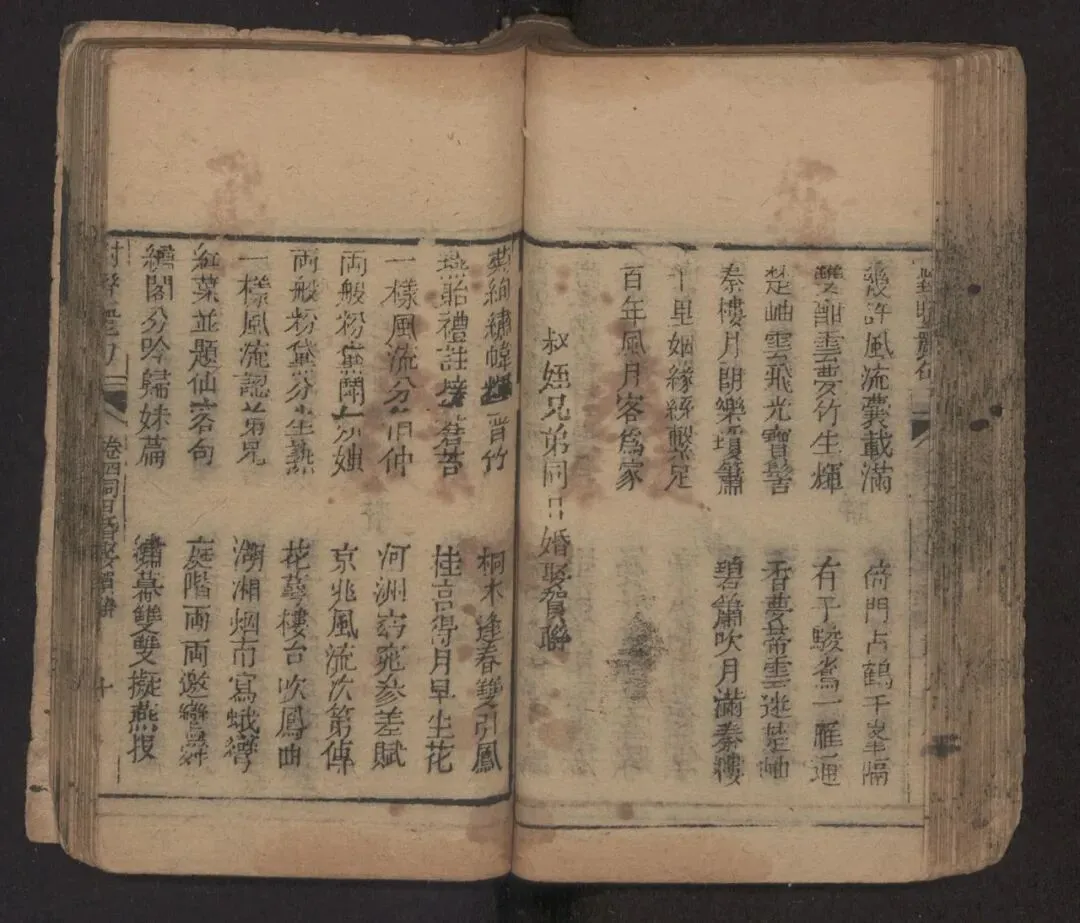 幾許風流囊載滿 倚門占鶴千里隔
雙 雲 竹生輝 有子駿鸞一雁通
楚岫雲飛光寶髻 香夢帶雲迷楚岫
秦樓月朗樂瓊簫 碧簫吹月滿秦樓
千里姻緣絲繫足
百年風月客爲家
叔姪兄弟同日婚娶賀聯
繡幃 晋竹 桐木逢春雙引鳳
燕貽禮 桂宮得月早生花
一樣風流分伯仲 河洲窈窕參差賦
両般粉黛 京兆風流次第傳
両般粉黛分生熟 花萼樓台吹鳳曲
一樣風流認弟兄 瀟湘烟雨寫蛾彎
紅葉並題仙客句 庭階両両邀鸞舞
繡閣分吟歸妹篇 繡幕雙雙擬燕投
卷四同日婚娶賀聯 十